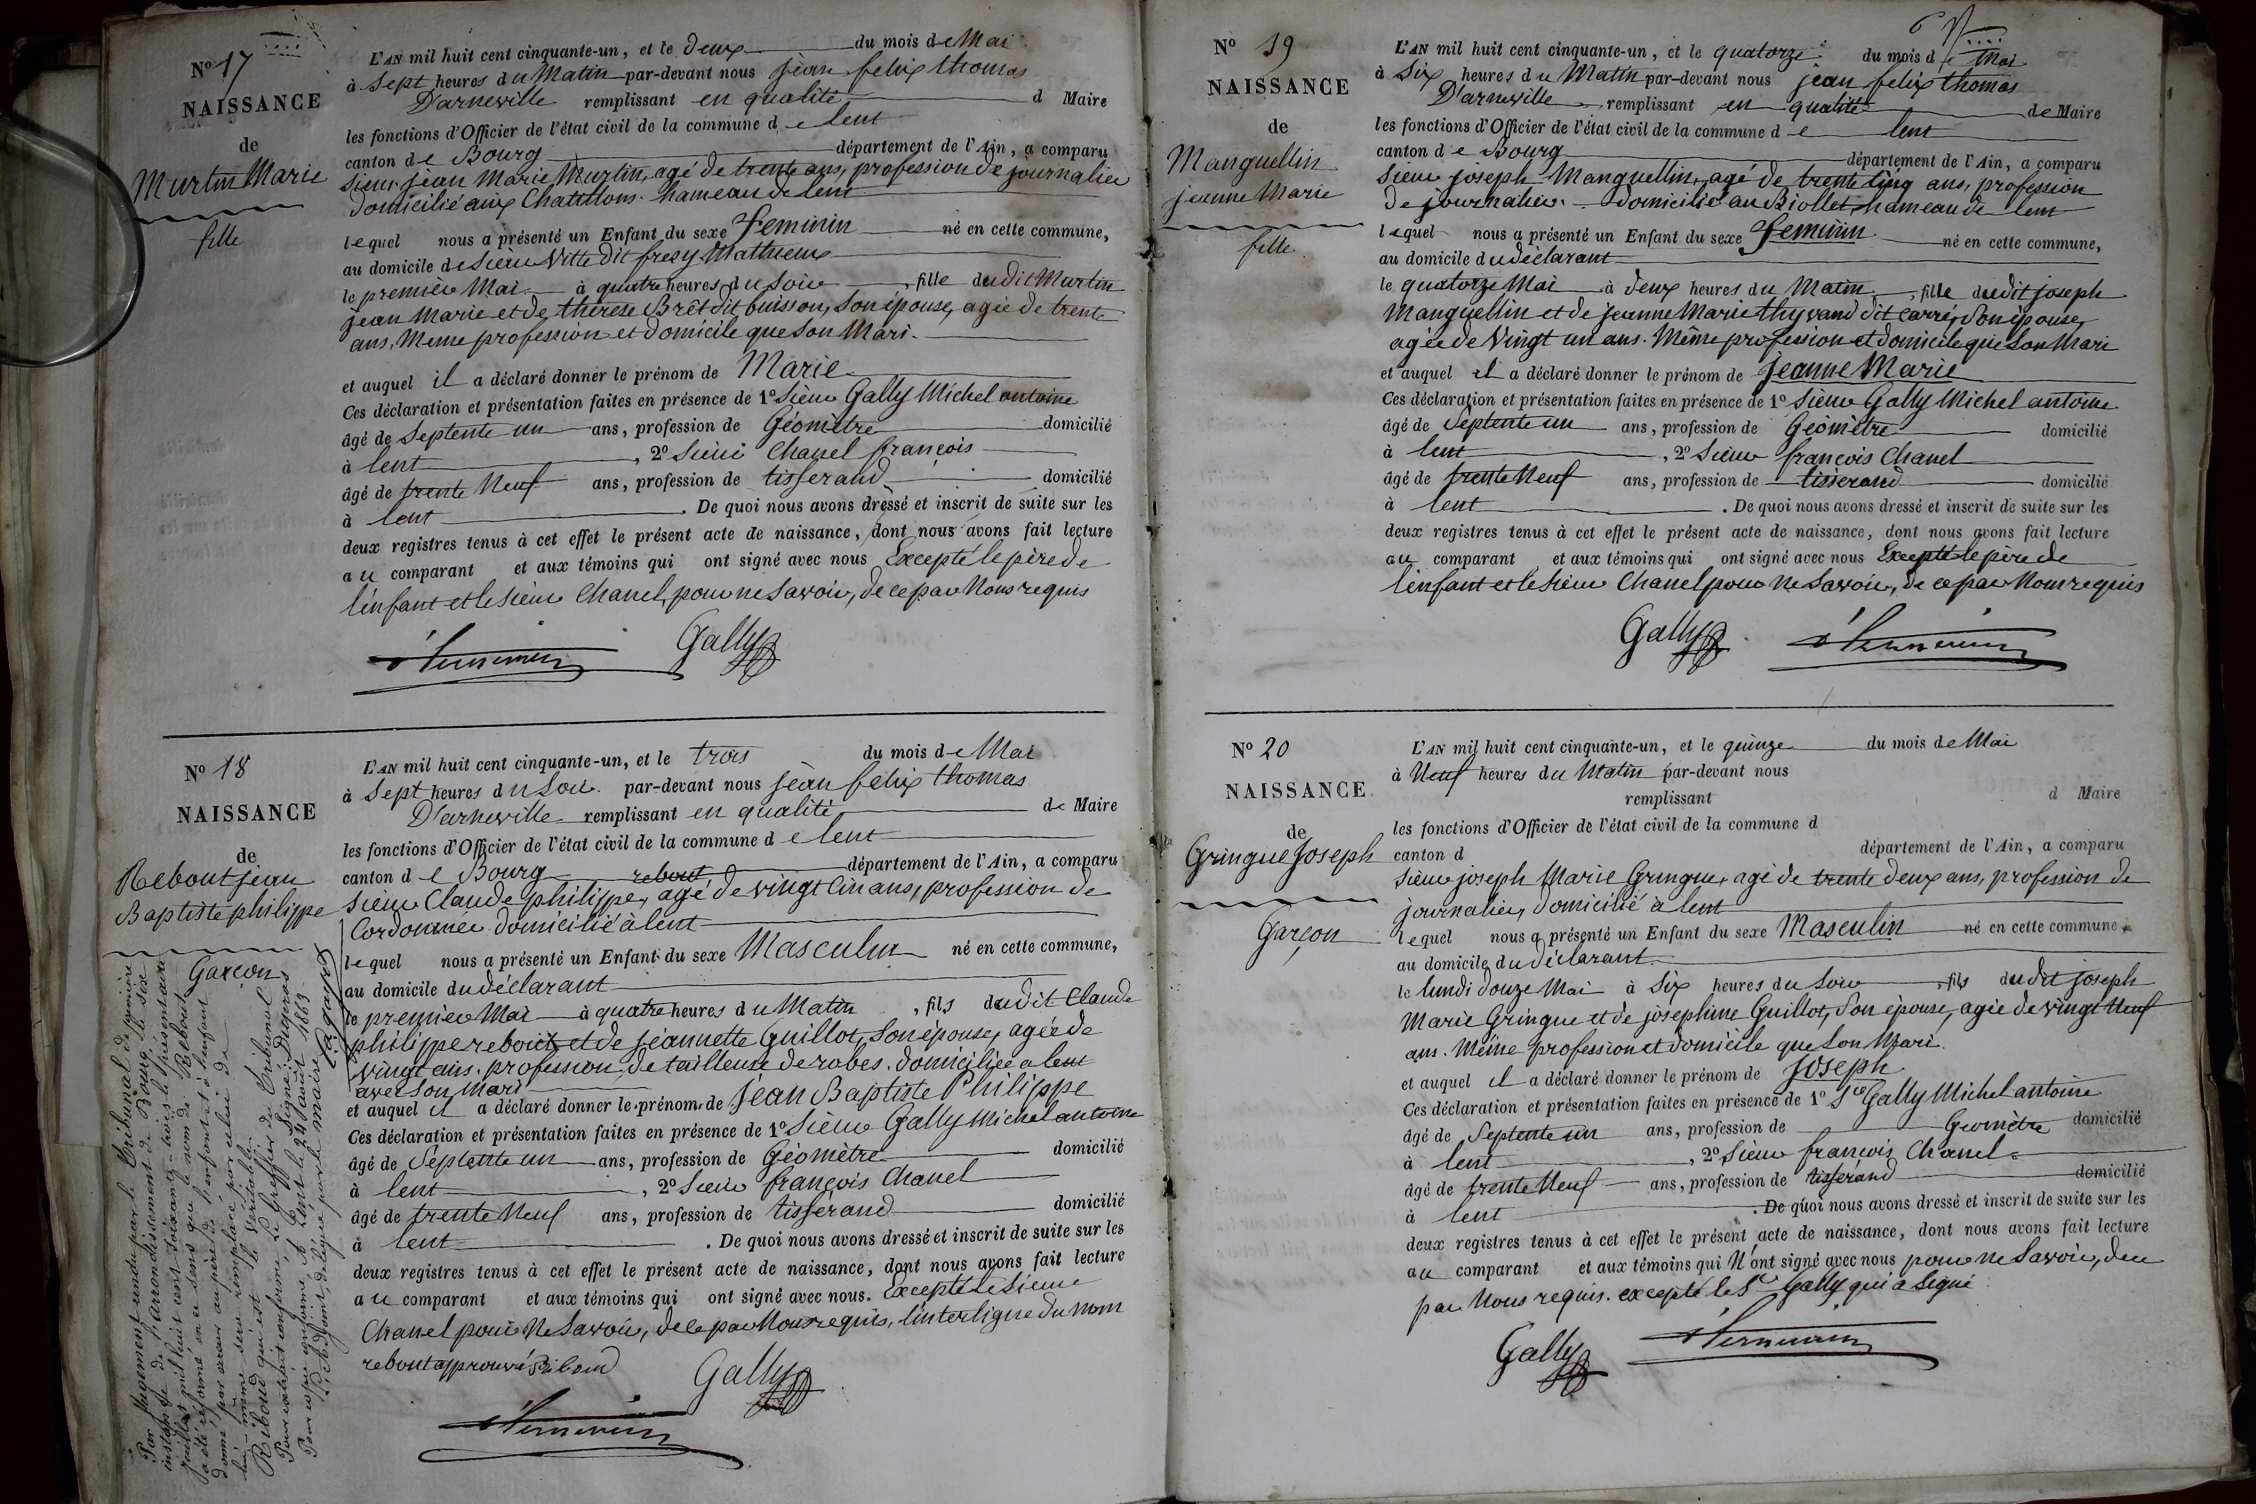 N° 17
NAISSANCE
de
Murtin Marie
fille
L'AN mil huit cent cinquante-un, et le deux du mois de Mai
à sept heures du Matin par-devant nous jean felix thomas
D'arneville remplissant en qualité d Maire
les fonctions d'Officier de l'état civil de la commune de lent
canton de Bourg département de l'Ain, a comparu
sieur jean Marie Murtin, agé de trente ans, profession de journalier
domicilié aux Chatillons hameau de lent
lequel nous a présenté un Enfant du sexe feminin né en cette commune,
au domicile de sieur Vitte dit fresy Mathieux
le premier Mai à quatre heures du soir, fille dudit Murtin
jean Marie et de thérese Brêt dit buisson, son épouse, agée de trente
ans, Meme profession et domicile que son Mari.
et auquel il a déclaré donner le prénom de Marie
Ces déclaration et présentation faites en présence de 1° Sieur Gally Michel antoine
âgé de Septente un ans, profession de Géomètre domicilié
à lent, 2° Sieur Chanel françois
âgé de trente Neuf ans, profession de tisserand domicilié
à lent. De quoi nous avons dressé et inscrit de suite sur les
deux registres tenus à cet effet le présent acte de naissance, dont nous avons fait lecture
au comparant et aux témoins qui ont signé avec nous Excepté le père de
l'enfant et le sieur Chanel, pour ne savoir, de ce par Nous requis
Gally
N° 18
NAISSANCE
de
Rebout jean
Baptiste philippe
Garcon
L'AN mil huit cent cinquante-un, et le trois du mois de Mai
à Sept heures du Soir par-devant nous jean felix thomas
D'arneville remplissant en qualité de Maire
les fonctions d'Officier de l'état civil de la commune de lent
canton de Bourg département de l'Ain, a comparu
rebout
sieur Claude philippe, agé de vingt cin ans, profession de
Cordonnier domicilié à lent
lequel nous a présenté un Enfant du sexe Masculin né en cette commune,
au domicile du déclarant
le premier Mai à quatre heures du Matin, fils dudit Claude
philippe rebout et de jeannette Guillot, son épouse, agée de
vingt ans, profession de tailleuse de robes, domiciliée a lent
avec son Mari
et auquel il a déclaré donner le prénom de Jéan Baptiste Philippe
Ces déclaration et présentation faites en présence de 1° Sieur Gally Michel antoine
âgé de Septente un ans, profession de Géomètre domicilié
à lent, 2° Sieur françois Chanel
âgé de trente Neuf ans, profession de tisserand domicilié
à lent. De quoi nous avons dressé et inscrit de suite sur les
deux registres tenus à cet effet le présent acte de naissance, dont nous avons fait lecture
au comparant et aux témoins qui ont signé avec nous. Excepté le sieur
Chanel pour Ne Savoir, de ce par Nous requis, l'interligne du nom
rebout approuvé
Gally
Par Jugement rendu par le Tribunal de première
instance de l'arrondissement de Bourg, le six
juillet mil huit cent soixante-trois le présent acte
a été réformé en ce sens que le nom de Rebout
donné par erreur au père de l'enfant et à l'enfant
lui-même sera remplacé par celui de
Riboud qui est le véritable.
Pour extrait conforme Le Greffier du Tribunal
Signé: Duparas
Pour copie conforme, A Lent le 24 aout 1863.
L'Adjoint, délégué par le maire
N° 19
NAISSANCE
de
Manguellin
jeanne Marie
fille
L'AN mil huit cent cinquante-un, et le quatorze du mois de Mai
à Six heures du Matin par-devant nous jean felix thomas
D'arneville remplissant en qualité de Maire
les fonctions d'Officier de l'état civil de la commune de lent
canton de Bourg département de l'Ain, a comparu
sieur joseph Manguellin, agé de trente cinq ans, profession
de journalier domicilié au Biollet, hameau de lent
lequel nous a présenté un Enfant du sexe feminin né en cette commune,
au domicile du déclarant
le quatorze Mai à deux heures du Matin, fille dudit joseph
Manguellin et de jeanne Marie thyvand dit Carré, son épouse,
agée de Vingt un ans. Même profession et domicile que son Mari
et auquel il a déclaré donner le prénom de jeanne Marie
Ces déclaration et présentation faites en présence de 1° Sieur Gally Michel antoine
âgé de Septente un ans, profession de Géomètre domicilié
à lent, 2° Sieur françois Chanel
âgé de trente Neuf ans, profession de tisserand domicilié
à lent. De quoi nous avons dressé et inscrit de suite sur les
deux registres tenus à cet effet le présent acte de naissance, dont nous avons fait lecture
au comparant et aux témoins qui ont signé avec nous Excepté le père de
l'enfant et le sieur Chanel pour Ne Savoir, de ce par Nous requis
Gally
N° 20
NAISSANCE
de
Gringue Joseph
Garçon
L'AN mil huit cent cinquante-un, et le quinze du mois de Mai
à Neuf heures du Matin par-devant nous
remplissant d Maire
les fonctions d'Officier de l'état civil de la commune d
canton d département de l'Ain, a comparu
sieur joseph Marie Gringue, agé de trente deux ans, profession de
journalier, domicilié à lent
lequel nous a présenté un Enfant du sexe Masculin né en cette commune,
au domicile du déclarant
le lundi douze Mai à Six heures du Soir, fils dudit joseph
Marie Gringue et de joséphine Guillot, son épouse, agée de vingt Neuf
ans. Même profession et domicile que son Mari
et auquel il a déclaré donner le prénom de joseph
Ces déclaration et présentation faites en présence de 1° Sr Gally Michel antoine
âgé de Septente un ans, profession de Géomètre domicilié
à lent, 2° Sieur françois Chanel
âgé de trente Neuf ans, profession de tisserand domicilié
à lent. De quoi nous avons dressé et inscrit de suite sur les
deux registres tenus à cet effet le présent acte de naissance, dont nous avons fait lecture
au comparant et aux témoins qui N'ont signé avec nous pour ne Savoir, de ce
par Nous requis. excepté le Sr Gally qui a Signé
Gally